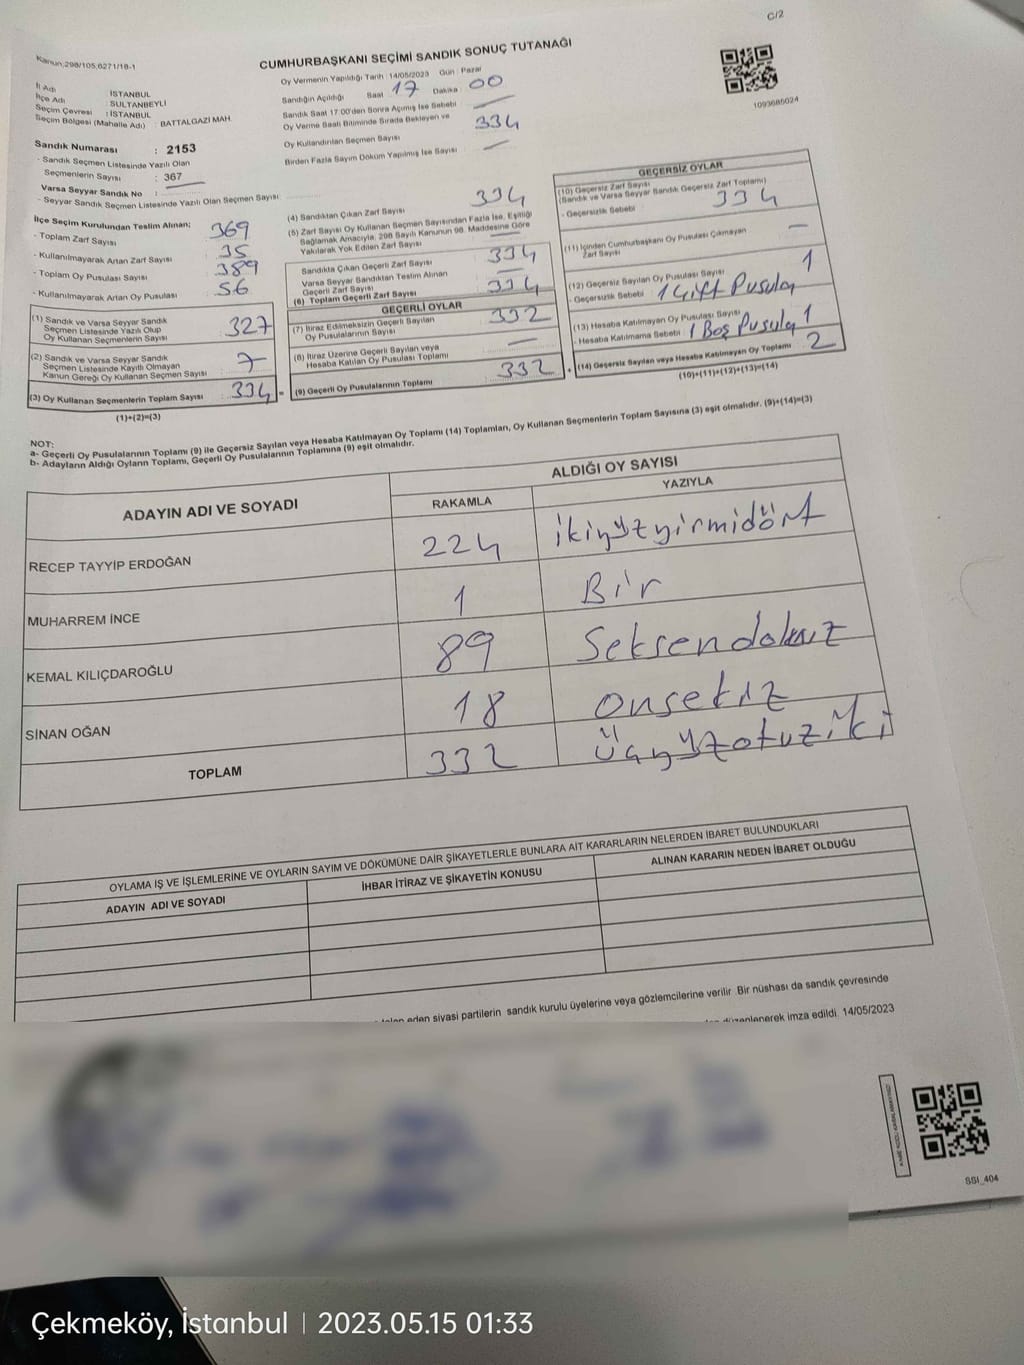 C/2
Kanun:298/105,6271/18-1
CUMHURBAŞKANI SEÇİMİ SANDIK SONUÇ TUTANAĞI
1093685024
İl Adı : İSTANBUL
İlçe Adı : SULTANBEYLİ
Seçim Çevresi : İSTANBUL
Seçim Bölgesi (Mahalle Adı) : BATTALGAZİ MAH.
Sandık Numarası : 2153
- Sandık Seçmen Listesinde Yazılı Olan
Seçmenlerin Sayısı : 367
Varsa Seyyar Sandık No :
- Seyyar Sandık Seçmen Listesinde Yazılı Olan Seçmen Sayısı :
Oy Vermenin Yapıldığı Tarih : 14/05/2023 Gün : Pazar
Sandığın Açıldığı Saat 17 Dakika : 00
Sandık Saat 17:00'den Sonra Açılmış İse Sebebi :
Oy Verme Saati Bitiminde Sırada Bekleyen ve
Oy Kullandırılan Seçmen Sayısı 334
Birden Fazla Sayım Döküm Yapılmış İse Sayısı :
İlçe Seçim Kurulundan Teslim Alınan;
- Toplam Zarf Sayısı 369
- Kullanılmayarak Artan Zarf Sayısı 35
- Toplam Oy Pusulası Sayısı 389
- Kullanılmayarak Artan Oy Pusulası 56
(1) Sandık ve Varsa Seyyar Sandık
Seçmen Listesinde Yazılı Olup
Oy Kullanan Seçmenlerin Sayısı 327
(2) Sandık ve Varsa Seyyar Sandık
Seçmen Listesinde Kayıtlı Olmayan
Kanun Gereği Oy Kullanan Seçmen Sayısı 7
(3) Oy Kullanan Seçmenlerin Toplam Sayısı 334 =
(1)+(2)=(3)
(4) Sandıktan Çıkan Zarf Sayısı 334
(5) Zarf Sayısı Oy Kullanan Seçmen Sayısından Fazla İse, Eşitliği
Sağlamak Amacıyla, 298 Sayılı Kanunun 98. Maddesine Göre
Yakılarak Yok Edilen Zarf Sayısı
Sandıkta Çıkan Geçerli Zarf Sayısı 334
Varsa Seyyar Sandıktan Teslim Alınan
Geçerli Zarf Sayısı
(6) Toplam Geçerli Zarf Sayısı 334
GEÇERLİ OYLAR
(7) İtiraz Edilmeksizin Geçerli Sayılan
Oy Pusulalarının Sayısı 332
(8) İtiraz Üzerine Geçerli Sayılan veya
Hesaba Katılan Oy Pusulası Toplamı
(9) Geçerli Oy Pusulalarının Toplamı 332 +
GEÇERSİZ OYLAR
(10) Geçersiz Zarf Sayısı
(Sandık ve Varsa Seyyar Sandık Geçersiz Zarf Toplamı) 334
- Geçersizlik Sebebi :
(11) İçinden Cumhurbaşkanı Oy Pusulası Çıkmayan
Zarf Sayısı
(12) Geçersiz Sayılan Oy Pusulası Sayısı 1
- Geçersizlik Sebebi 1 Çift Pusula
(13) Hesaba Katılmayan Oy Pusulası Sayısı 1
- Hesaba Katılmama Sebebi : 1 Boş Pusula
(14) Geçersiz Sayılan veya Hesaba Katılmayan Oy Toplamı 2
(10)+(11)+(12)+(13)=(14)
NOT:
a- Geçerli Oy Pusulalarının Toplamı (9) ile Geçersiz Sayılan veya Hesaba Katılmayan Oy Toplamı (14) Toplamları, Oy Kullanan Seçmenlerin Toplam Sayısına (3) eşit olmalıdır. (9)+(14)=(3)
b- Adayların Aldığı Oyların Toplamı, Geçerli Oy Pusulalarının Toplamına (9) eşit olmalıdır.
ADAYIN ADI VE SOYADI
ALDIĞI OY SAYISI
RAKAMLA YAZIYLA
RECEP TAYYİP ERDOĞAN 224 ikiyüzyirmidört
MUHARREM İNCE 1 Bir
KEMAL KILIÇDAROĞLU 89 Seksendokuz
SİNAN OĞAN 18 onsekiz
TOPLAM 332 üçyüzotuziki
OYLAMA İŞ VE İŞLEMLERİNE VE OYLARIN SAYIM VE DÖKÜMÜNE DAİR ŞİKAYETLERLE BUNLARA AİT KARARLARIN NELERDEN İBARET BULUNDUKLARI
ADAYIN ADI VE SOYADI İHBAR İTİRAZ VE ŞİKAYETİN KONUSU ALINAN KARARIN NEDEN İBARET OLDUĞU
eden siyasi partilerin sandık kurulu üyelerine veya gözlemcilerine verilir .Bir nüshası da sandık çevresinde
düzenlenerek imza edildi. 14/05/2023
SSI_404
Çekmeköy, İstanbul | 2023.05.15 01:33